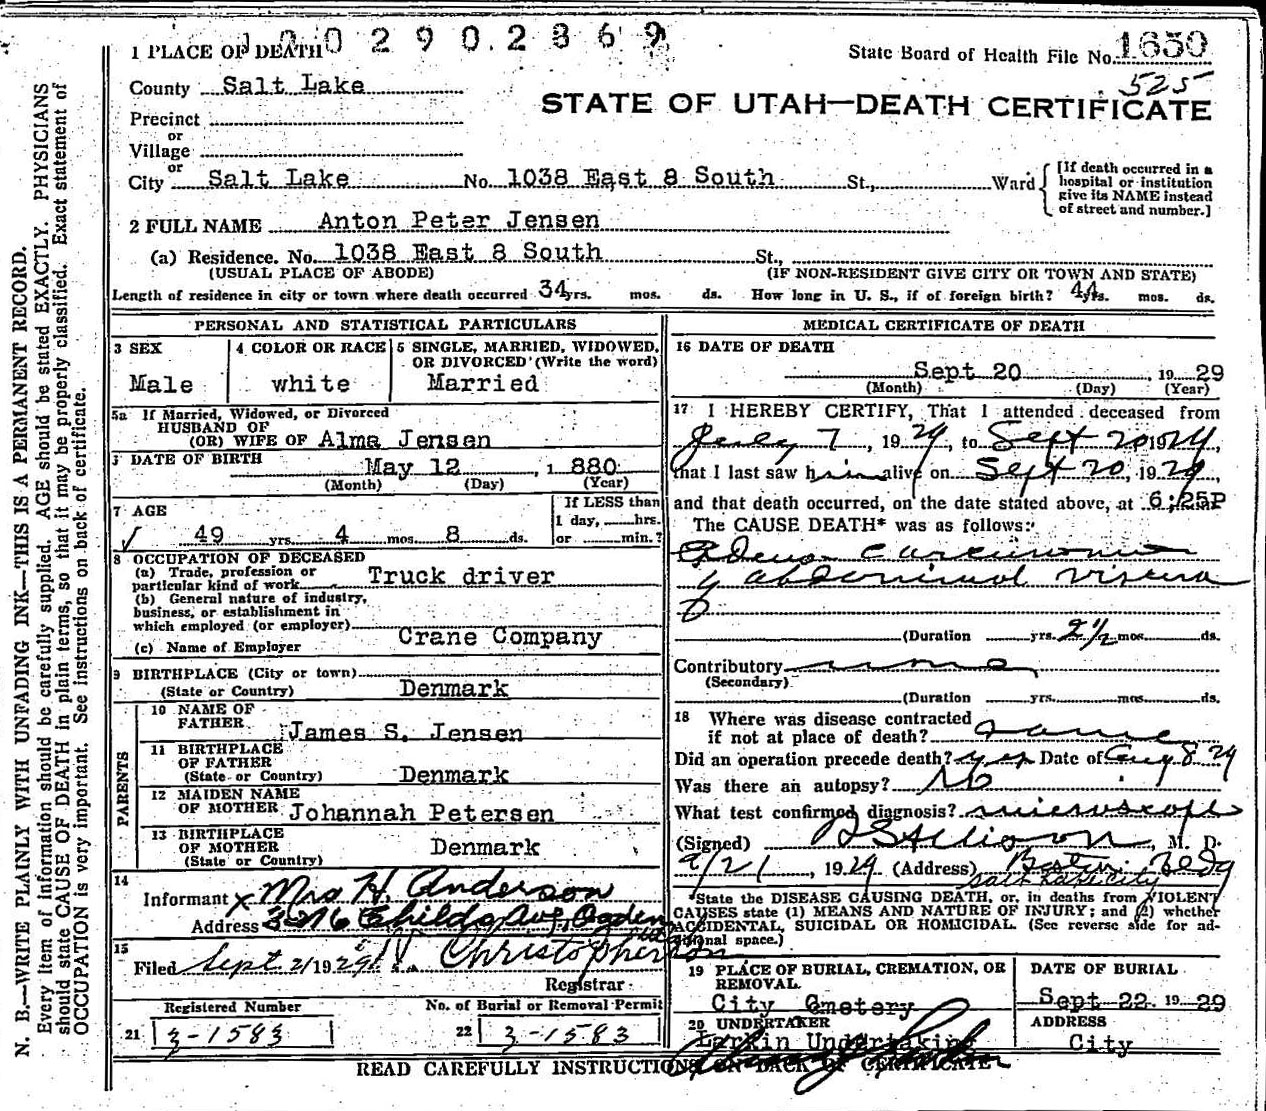 0 0 2 9 0 2 3 6 9
1 PLACE OF DEATH
State Board of Health File No. 1650
525
County Salt Lake
STATE OF UTAH—DEATH CERTIFICATE
Precinct
or
Village
or
City Salt Lake No. 1038 East 8 South St., Ward
[If death occurred in a hospital or institution give its NAME instead of street and number.]
2 FULL NAME Anton Peter Jensen
(a) Residence. No. 1038 East 8 South St.,
(USUAL PLACE OF ABODE) (IF NON-RESIDENT GIVE CITY OR TOWN AND STATE)
Length of residence in city or town where death occurred 34 yrs. mos. ds. How long in U. S., if of foreign birth? 44 yrs. mos. ds.
PERSONAL AND STATISTICAL PARTICULARS
3 SEX
Male
4 COLOR OR RACE
white
5 SINGLE, MARRIED, WIDOWED,
OR DIVORCED (Write the word)
Married
5a If Married, Widowed, or Divorced
HUSBAND OF
(OR) WIFE OF Alma Jensen
DATE OF BIRTH
May 12, 1880
(Month) (Day) (Year)
7 AGE
49 yrs. 4 mos. 8 ds.
If LESS than
1 day, hrs.
or min.?
8 OCCUPATION OF DECEASED
(a) Trade, profession or
particular kind of work Truck driver
(b) General nature of industry,
business, or establishment in
which employed (or employer)
(c) Name of Employer Crane Company
9 BIRTHPLACE (City or town)
(State or Country) Denmark
PARENTS
10 NAME OF
FATHER James S. Jensen
11 BIRTHPLACE
OF FATHER
(State or Country) Denmark
12 MAIDEN NAME
OF MOTHER Johannah Petersen
13 BIRTHPLACE
OF MOTHER
(State or Country) Denmark
14
Informant x Mrs H. Anderson
Address 3276 Childs Ave, Ogden
15
Filed Sept 21 1929 Christopherson
Registrar
Registered Number
21 3-1583
No. of Burial or Removal Permit
22 3-1583
MEDICAL CERTIFICATE OF DEATH
16 DATE OF DEATH
Sept 20, 1929
(Month) (Day) (Year)
17 I HEREBY CERTIFY, That I attended deceased from
July 7, 1929, to Sept 20 1929,
that I last saw him alive on Sept 20, 1929,
and that death occurred, on the date stated above, at 6:25P m
The CAUSE DEATH* was as follows:
Adeno carcinoma
of abdominal viscera
(Duration yrs. 2 1/2 mos. ds.
Contributory none
(Secondary)
(Duration yrs. mos. ds.
18 Where was disease contracted
if not at place of death? same
Did an operation precede death? yes Date of Aug 8 29
Was there an autopsy? No
What test confirmed diagnosis? microscope
(Signed) Allison, M. D.
9/21, 1929 (Address) Boston Bldg
Salt Lake City
*State the DISEASE CAUSING DEATH, or, in deaths from VIOLENT
CAUSES state (1) MEANS AND NATURE OF INJURY; and (2) whether
ACCIDENTAL, SUICIDAL OR HOMICIDAL. (See reverse side for ad-
ditional space.)
19 PLACE OF BURIAL, CREMATION, OR
REMOVAL
City Cmetery
DATE OF BURIAL
Sept 22. 1929
20 UNDERTAKER
Larkin Undertaking
ADDRESS
City
READ CAREFULLY INSTRUCTIONS ON BACK OF CERTIFICATE
N. B.—WRITE PLAINLY WITH UNFADING INK—THIS IS A PERMANENT RECORD.
Every item of information should be carefully supplied. AGE should be stated EXACTLY. PHYSICIANS
should state CAUSE OF DEATH in plain terms, so that it may be properly classified. Exact statement of
OCCUPATION is very important. See instructions on back of certificate.